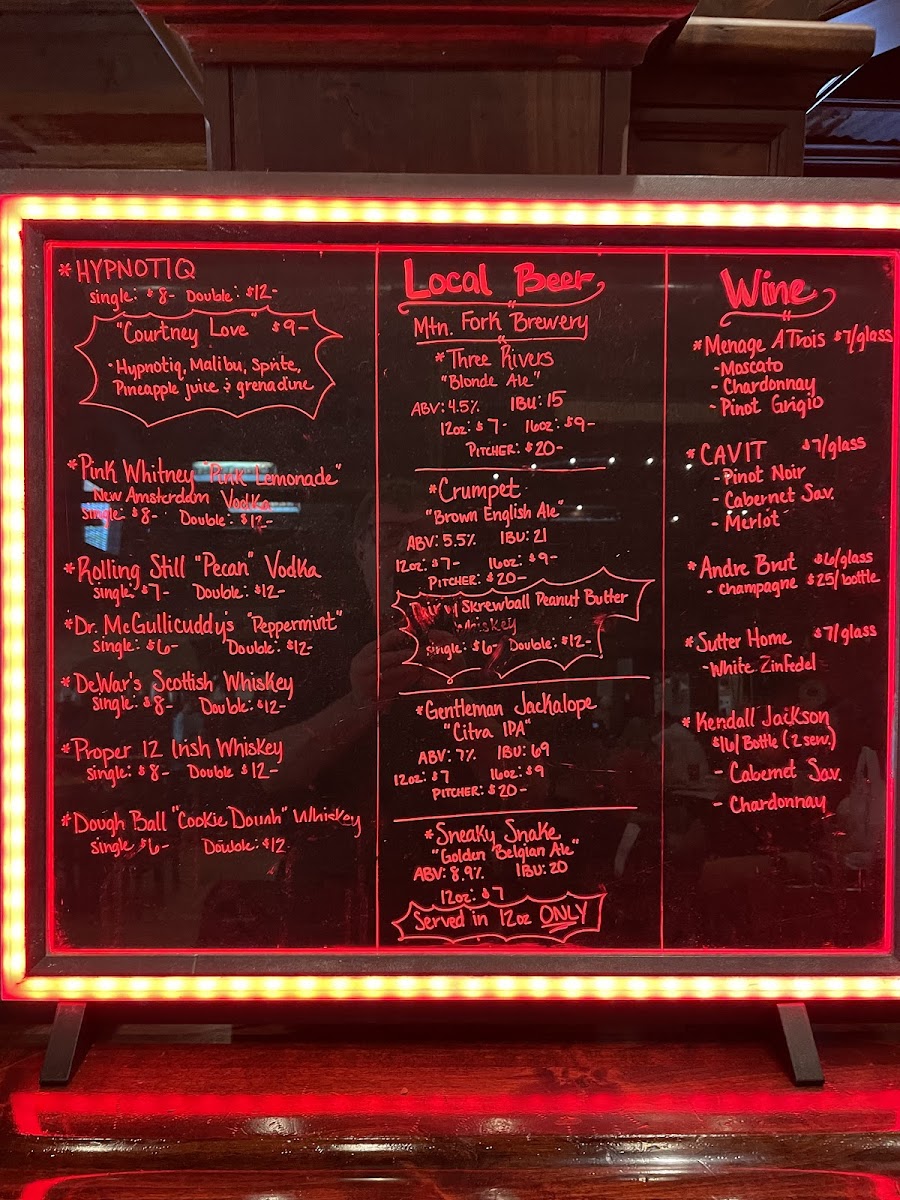 * HYPNOTIQ
Single: $8- Double: $12-
"Courtney Love" $9-
· Hypnotiq, Malibu, Sprite,
Pineapple juice & grenadine
* Pink Whitney "Pink Lemonade"
New Amsterdam Vodka
Single $8- Double: $12-
* Rolling Still "Pecan" Vodka
Single $7- Double: $12-
* Dr. McGullicuddy's "Peppermint"
Single: $6- Double: $12-
* DeWar's Scottish Whiskey
Single: $8- Double: $12-
* Proper 12 Irish Whiskey
Single: $8- Double $12-
* Dough Ball "Cookie Dough" Whiskey
Single $6- Double: $12
Local Beer
Mtn. Fork Brewery
* Three Rivers
"Blonde Ale"
ABV: 4.5% IBU: 15
12oz: $7- 16oz: $9-
Pitcher: $20-
* Crumpet
"Brown English Ale"
ABV: 5.5% IBU: 21
12oz: $7- 16oz: $9-
Pitcher: $20-
Pair w/ Skrewball Peanut Butter
Whiskey
Single: $6- Double: $12-
* Gentleman Jackalope
"Citra IPA"
ABV: 7% IBU: 69
12oz: $7 16oz: $9
Pitcher: $20-
* Sneaky Snake
"Golden Belgian Ale"
ABV: 8.9% IBU: 20
12oz: $7
Served in 12oz ONLY
Wine
* Menage A Trois $7/glass
- Moscato
- Chardonnay
- Pinot Grigio
* CAVIT $7/glass
- Pinot Noir
- Cabernet Sav.
- Merlot
* Andre Brut $6/glass
- champagne $25/bottle
* Sutter Home $7/glass
- White Zinfedel
* Kendall Jackson
$16/Bottle (2 serv.)
- Cabernet Sav.
- Chardonnay